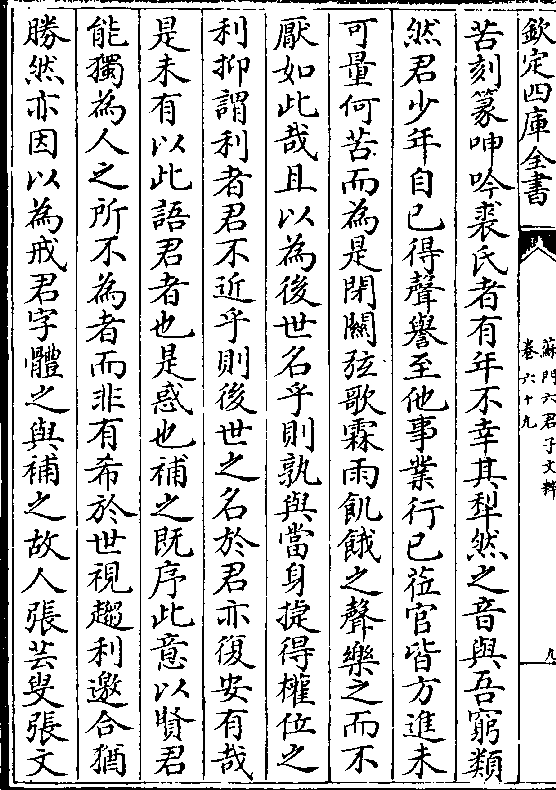 欽定四庫全書
蘇門六君子文粹
卷六十九
九
苦刻篆呻吟裘氏者有年不幸其犁然之音與吾窮類
然君少年自已得聲譽至他事業行已莅官皆方進未
可量何苦而為是閉關弦歌霖雨飢餓之聲樂之而不
厭如此哉且以為後世名乎則孰與當身㨗得權位之
利抑謂利者君不近乎則後世之名於君亦復安有哉
是未有以此語君者也是惑也補之既序此意以賢君
能獨為人之所不為者而非有希於世視趨利邀合猶
勝然亦因以為戒君字體之與補之故人張芸叟張文